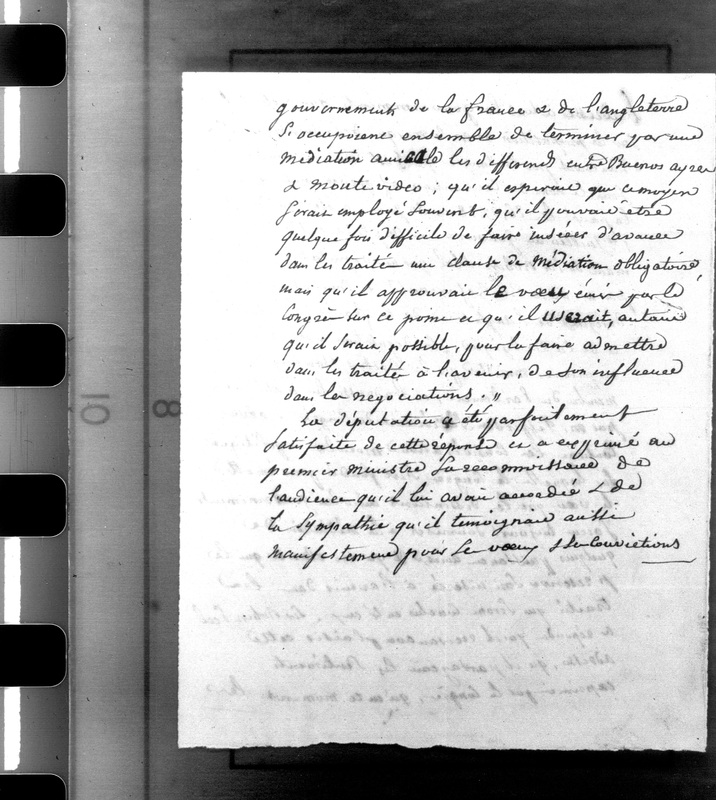 gouvernements de la france & de l'angleterre
s'occupoient ensemble de terminer par une
médiation amicale les differends entre Buenos ayres
& monte video ; qu'il esperait que ce moyen
serait employé souvent, qu'il pouvait être
quelque fois difficile de faire insérer d'avance
dans les traités une clause de médiation obligatoire,
mais qu'il approuvait le voeu émis par le
Congrès sur ce point et qu'il userait, autant
qu'il serait possible, pour la faire admettre
dans les traités à l'avenir, de son influence
dans les negociations. "
La députation a été parfaitement
satisfaite de cette réponse et a exprimé au
premier ministre sa reconnoissance de
l'audience qu'il lui avait accordée & de
la sympathie qu'il temoignait aussi
manifestement pour le voeu & les convictions
10
8